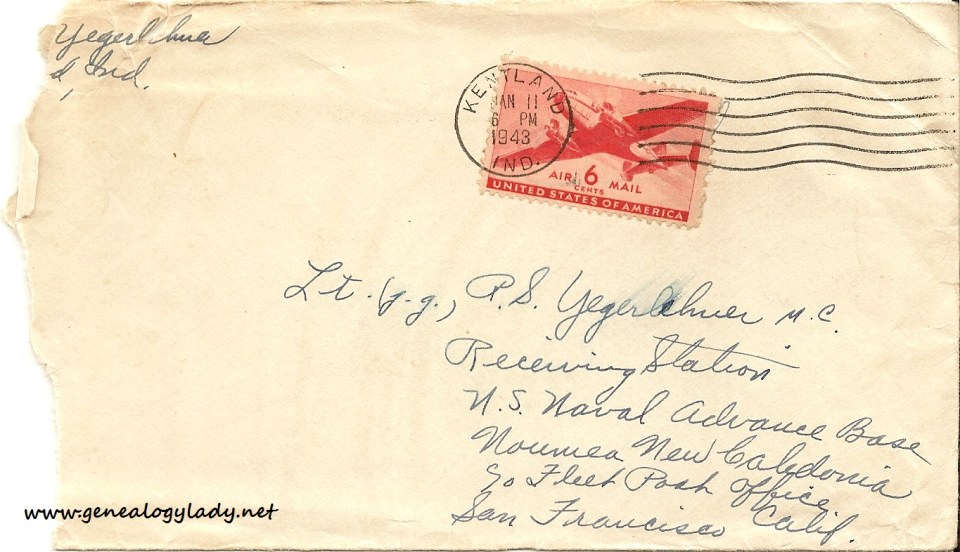 Yegerlehner
d, Ind.
KENTLAND
JAN 11
6 PM
1943
IND.
AIR 6 MAIL
CENTS
UNITED STATES OF AMERICA
Lt. (j.g.), R.S. Yegerlehner M.C.
Receiving Station
U.S. Naval Advance Base
Noumea New Caledonia
c/o Fleet Post Office
San Francisco Calif.
www.genealogylady.net